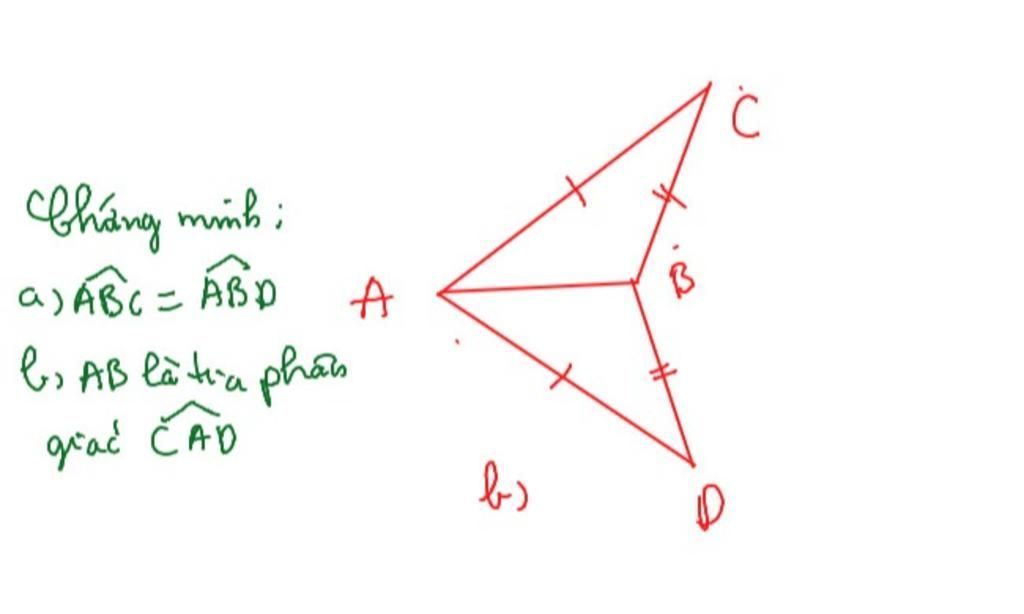 Chứng minh:
a) ABC = ABD
b) AB là tia phân
giác CAD
A
B
C
D
b)